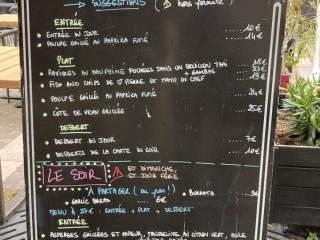 → SUGGESTIONS (⚠ hors formule)
ENTRÉE
• ENTRÉE DU JOUR ..... 10€
• POULPE GRILLÉ AU PAPRIKA FUMÉ ..... 14€
PLAT
• RAVIOLES DU DAUPHINÉ POCHÉES DANS UN BOUILLON THAÏ ..... 18€
+ GAMBAS 23€
• FISH AND CHIPS DE ST PIERRE ET MAYO DU CHEF ..... 19€
• POULPE GRILLÉ AU PAPRIKA FUMÉ ..... 24€
• CÔTE DE VEAU GRILLÉE ..... 25€
DESSERT
• DESSERT DU JOUR ..... 7€
• DESSERTS DE LA CARTE DU SOIR ..... 10€
LE SOIR ⚠ ET DIMANCHE,
ET JOUR FÉRIÉ
À PARTAGER (ou pas!) • BURRATA
• GARLIC BREAD ..... 6€
MENU À 39€ : ENTRÉE + PLAT + DESSERT
ENTRÉE
• ASPERGES GRILLÉES ET VAPEUR, MOUSSELINE AU CITRON VERT, HUILE